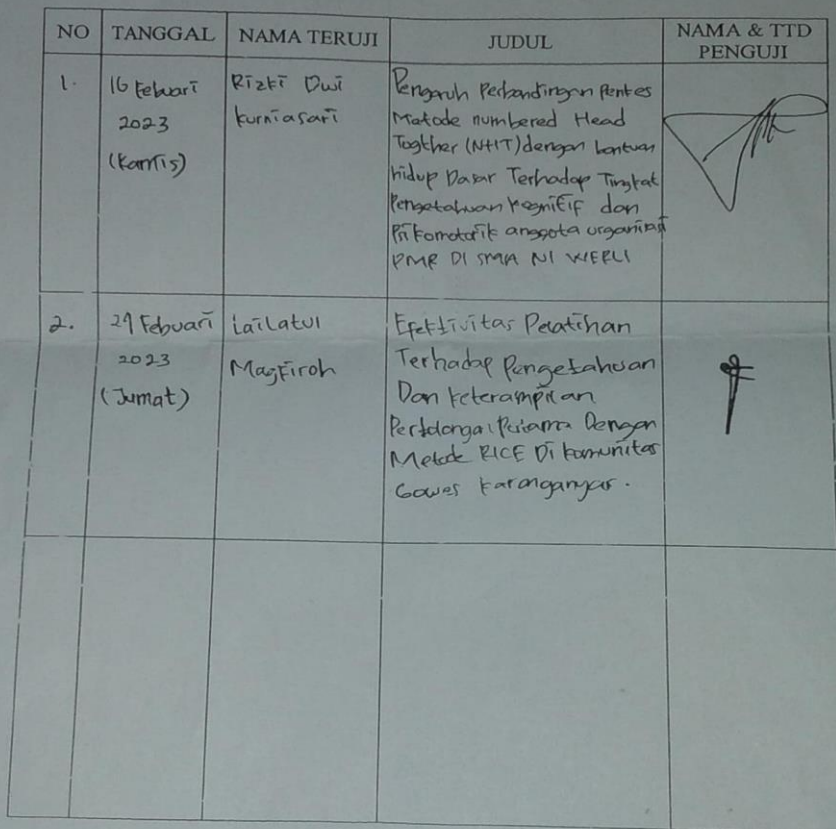 NO TANGGAL NAMA TERUJI JUDUL NAMA & TTD PENGUJI
1. 16 Febuari 2023 (Kamis)
Rizki Dwi Kurniasari
Pengaruh Perbandingan Pentes
Metode numbered Head
Togther (NHT) dengan bantuan
hidup Dasar Terhadap Tingkat
Pengetahuan Kognitif dan
Psikomotorik anggota organisasi
PMR DI SMA N1 WERU
2. Febuari 2023 (Jumat)
Lailatul
Efektivitas Pelatihan
Terhadap Pengetahuan
Dan Keterampilan
Pertolongan Pertama Dengan
Metode RICE Di Komunitas
Gowes Karanganyar.